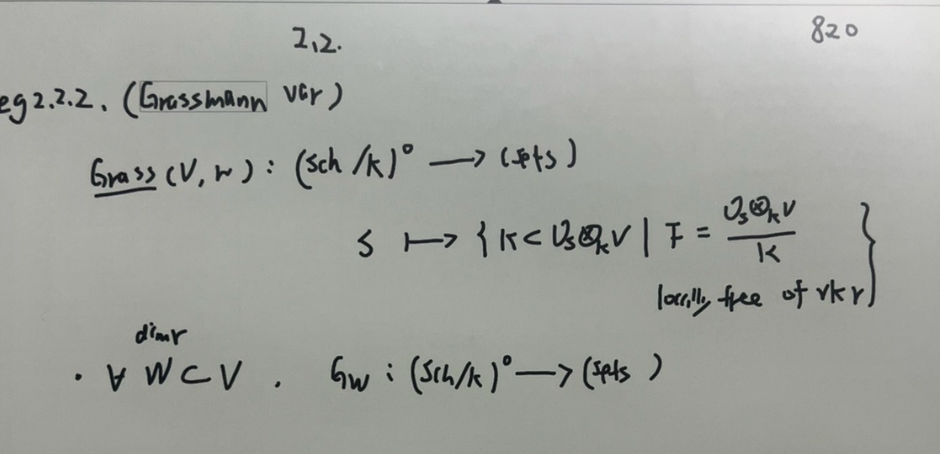 2.2.
820
eg2.2.2. (Grassmann var)
Grass (V, r) : (Sch /k)° ⟶ (sets)
S ⟼ { K ⊂ O_S⊗_k V | F = O_S⊗_k V / K
locally free of rk r }
dim r
· ∀ W ⊂ V . G_W : (Sch/k)° ⟶ (sets )